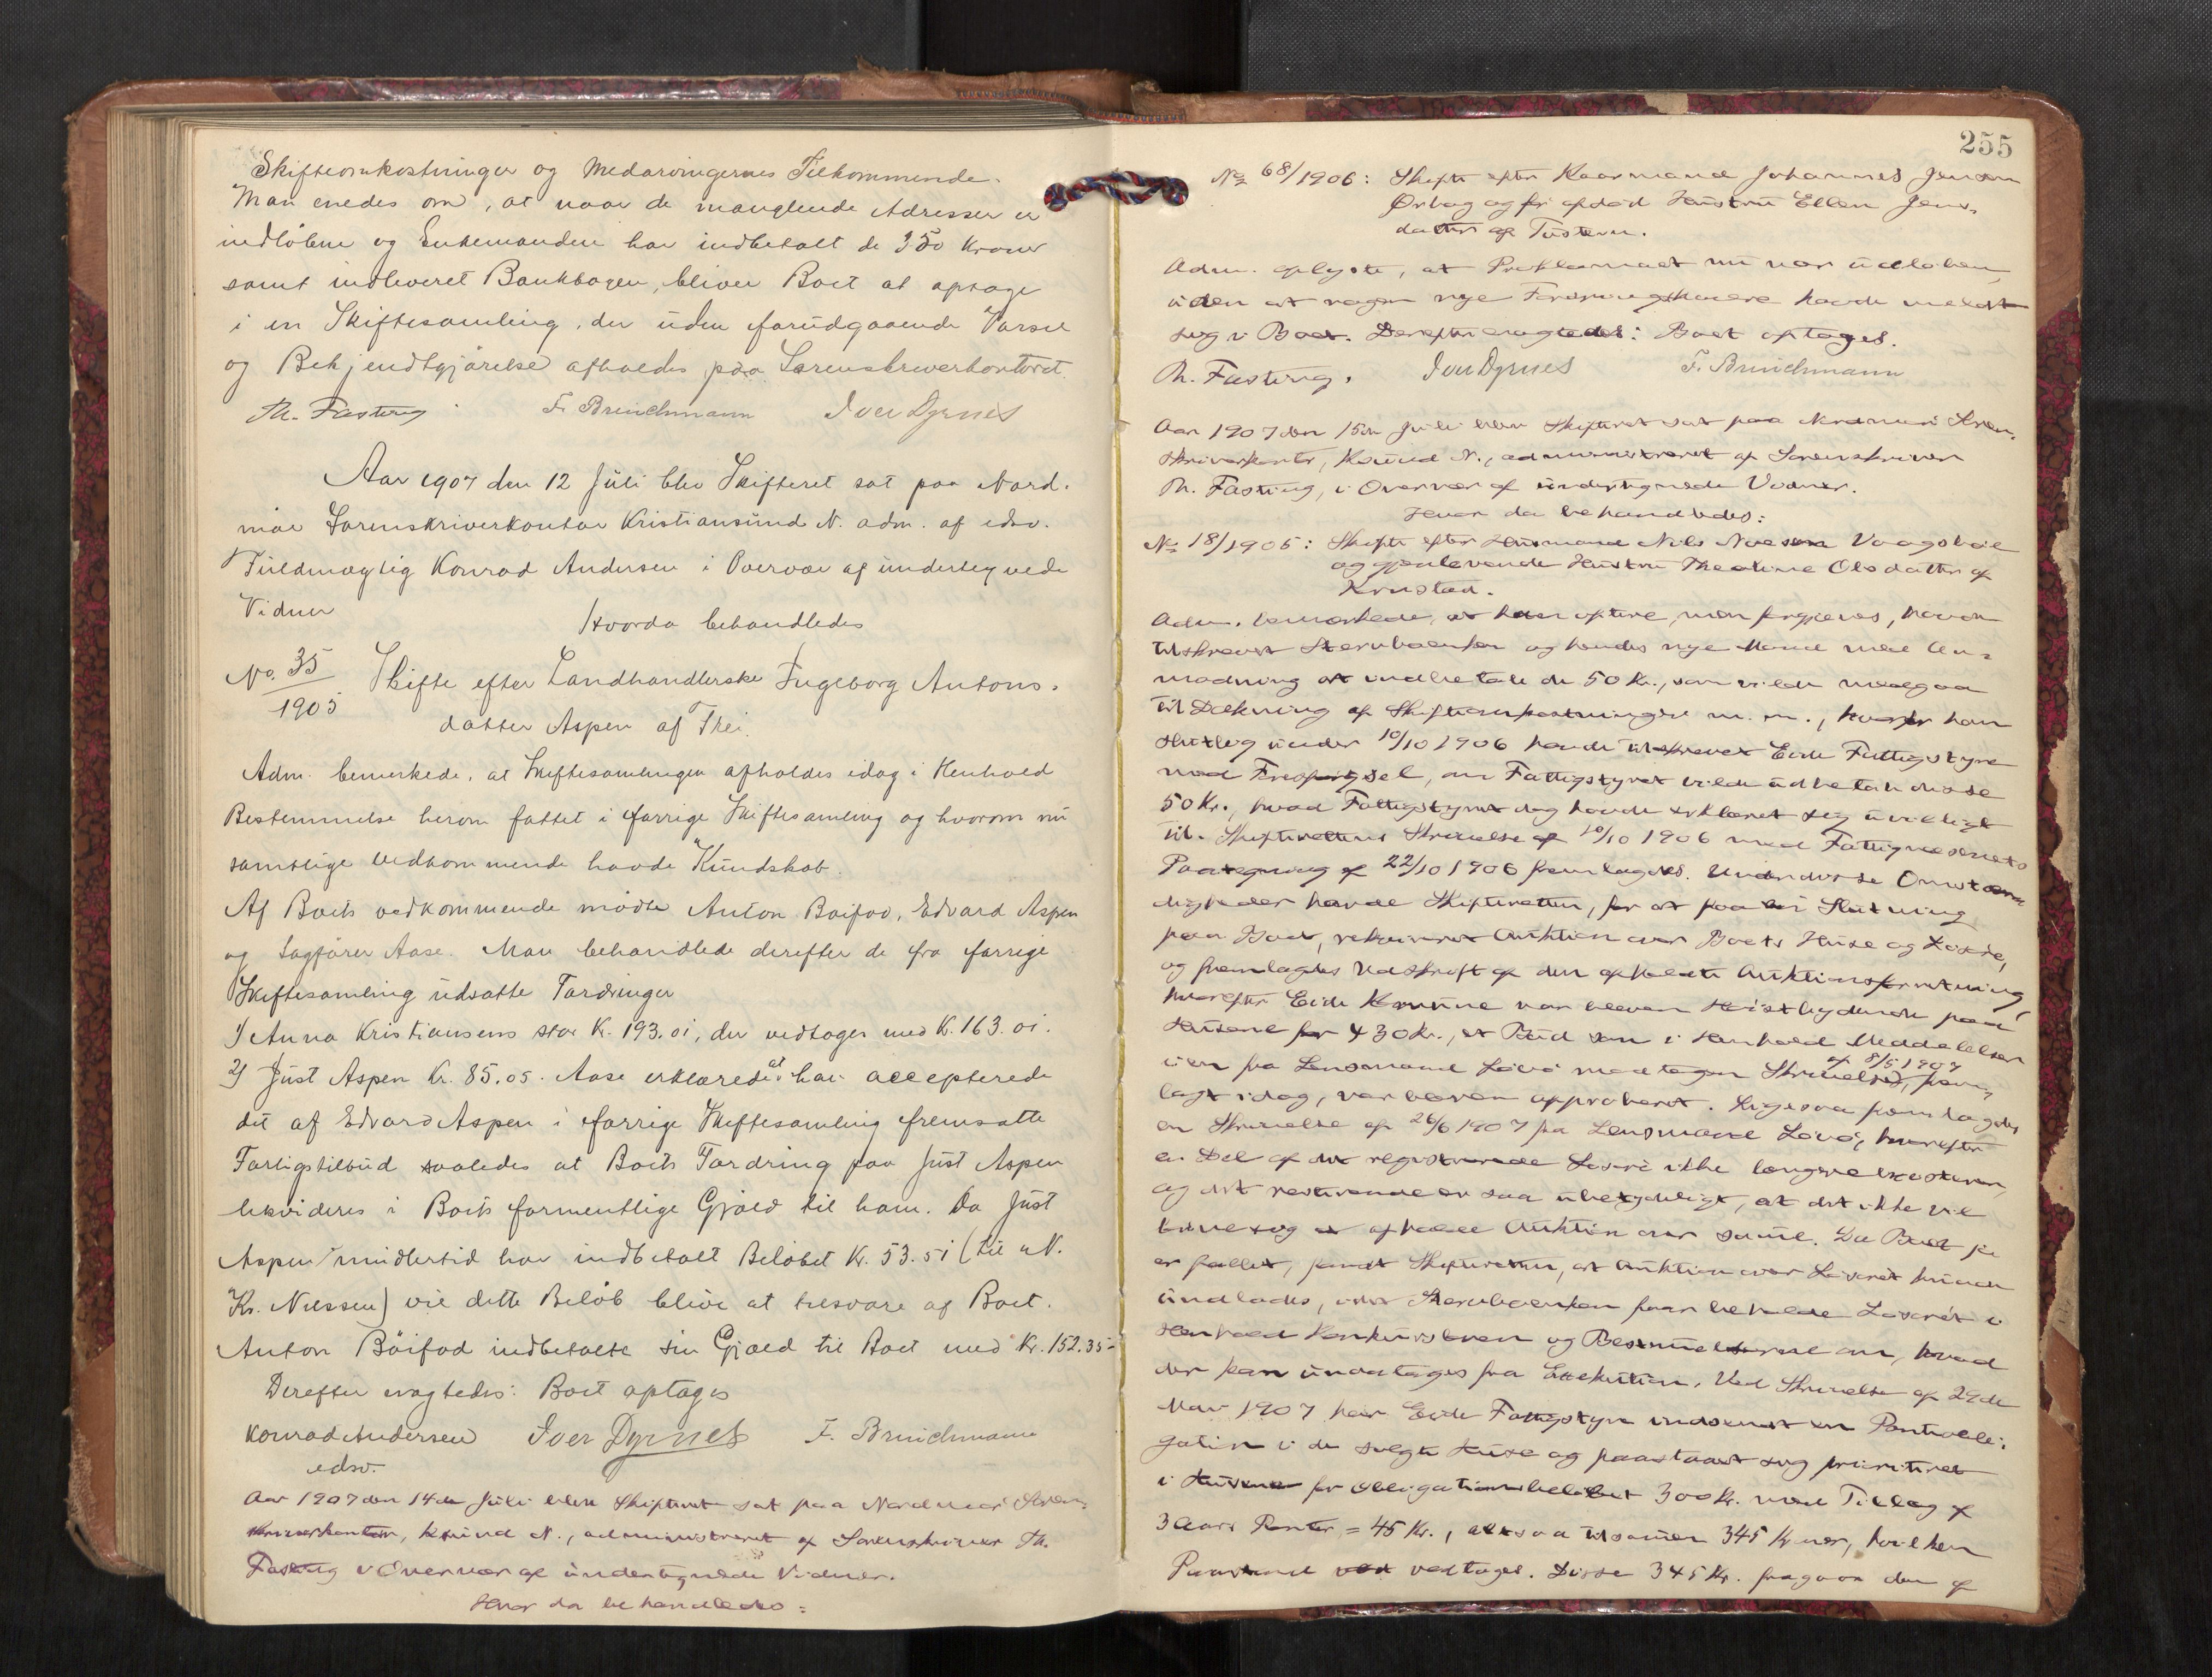 Skifteomkostninger og Medarvingernes Tilkommende.
Man enedes om, at naar de manglende Adresser er
indløbne og Enkemanden har indbetalt de 350 Kroner
samt indleveret Bankbogen, bliver Boet at optage
i en Skiftesamling, der uden forudgaaende Varsel
og Bekjendtgjørelse afholdes paa Sorenskriverkontoret.
Th. Fasting F. Brinchmann Iver Dyrnes
Aar 1907 den 12 Juli blev Skifteret sat paa Nord-
møre Sorenskriverkontor Kristiansund N. adm. af edsv.
Fuldmægtig Konrad Andersen i Overvær af undertegnede
Vidner
Hvorda behandledes
No. 35/1905 Skifte efter Landhandlerske Ingeborg Antons-
datter Aspen af Frei.
Adm. bemerkede, at Skiftesamlingen afholdes idag i Henhold
Bestemmelse herom fattet i forrige Skiftesamling og hvorom nu
samtlige Vedkommende havde Kundskab.
Af Boets vedkommende mødte Anton Bøifod, Edvard Aspen
og Sagfører Aase. Man behandlede derefter de fra forrige
Skiftesamling udsatte Fordringer
1) Anna Kristiansens stor Kr. 193.01, der vedtoges med Kr. 163.01.
2) Just Aspen Kr. 85.05. Aase erklærede at han accepterede
det af Edvard Aspen i forrige Skiftesamling fremsatte
Forligstilbud saaledes at Boets Fordring paa Just Aspen
likvideres i Boets formentlige Gjæld til ham. Da Just
Aspen imidlertid har indbetalt Beløbet Kr. 53.51 (til N.
Kr. Nilssen) vil dette Beløb blive at tilsvare af Boet.
Anton Böifod indbetalte sin Gjæld til Boet med Kr. 152.35-
Derefter eragtedes: Boet optages
Konrad Andersen Iver Dyrnes F. Brinchmann
edsv.
Aar 1907 den 14de Juli blev Skifteret sat paa Nordmør Soren-
skriverkontor, Ksund N., administreret af Sorenskriver Th.
Fasting i Overvær af undertegnede Vidner.
Hvor da behandledes:
255
No 68/1906: Skifte efter Kaarmand Johannes Jensen
Ørbog og før afdød Hustru Ellen Jens-
datter af Tustern.
Adm. oplyste, at Proklamaet nu var udløben,
uden at nogen nye Fordringshavere havde meldt
sig i Boet. Derefter eragtedes: Boet optages.
Th. Fasting. Iver Dyrnes F. Brinchmann
Aar 1907 den 15de Juli blev Skifteret sat paa Nordmøre Soren-
skriverkontor, Ksund N., administreret af Sorenskriver
Th. Fasting, i Overvær af undertegnede Vidner.
Hvor da behandledes:
No 18/1905: Skifte efter Husmand Nils Vaagsbøe
og gjenlevende Hustru Theoline Olsdatter af
Adm. bemærkede, at han oftere, men forgjæves, havde
tilskrevet Sterboenken og hendes nye Mand med An-
modning at indbetale de 50 Kr., som vilde medgaa
til Dækning af Skifteomkostninger m. m., hvorfor han
sluttelig under 10/10 1906 havde tilskrevet Eide Fattigstyre
med Forespørgsel, om Fattigstyret vilde udbetale disse
50 Kr., hvad Fattigstyret dog havde erklæret sig uvilligt
til. Skifterettens Skrivelse af 10/10 1906 med Fattigvæsenets
Paategning af 22/10 1906 fremlagdes. Under disse Omstæn-
digheder havde Skifteretten, for at faa en Slutning
paa Boet, rekvireret Auktion over Boets Huse og Løsøre,
og fremlagdes Udskrift af den afholdte Auktionsforretning,
hvorefter Eide Kommune var bleven Høistbydende paa
Husene for 430 Kr., et Bud som i Henhold Meddelelser
i en fra Lensmand Løvø modtagen Skrivelse af 8/5 1907, frem-
lagt idag, var bleven approberet. Ligesaa fremlagdes
en Skrivelse af 26/6 1907 fra Lensmand Løvø, hvorefter
en Del af det registrerede Løsøre ikke længere existerer,
og det resterende er saa ubetydeligt, at det ikke vil
lønne sig at afholde Auktion over samme. Da Boet jo
er fallit, fandt Skifteretten, at Auktion over Løsøret kunde
undlades, idet Sterboenken faar beholde Løsøret i
Henhold Konkursloven og Bestemmelserne om, hvad
der kan undtages fra Exekution. Ved Skrivelse af 29de
Mai 1907 har Eide Fattigstyre indsendt en Pantobli-
gation i de solgte Huse og paastaaet sig prioriteret
i Husene for Obligationsbeløbet 300 Kr. med Tillæg af
3 Aars Renter = 45 Kr., altsaa tilsammen 345 Kroner, hvilken
Paastand vedtoges. Disse 345 Kr. fragaar den af